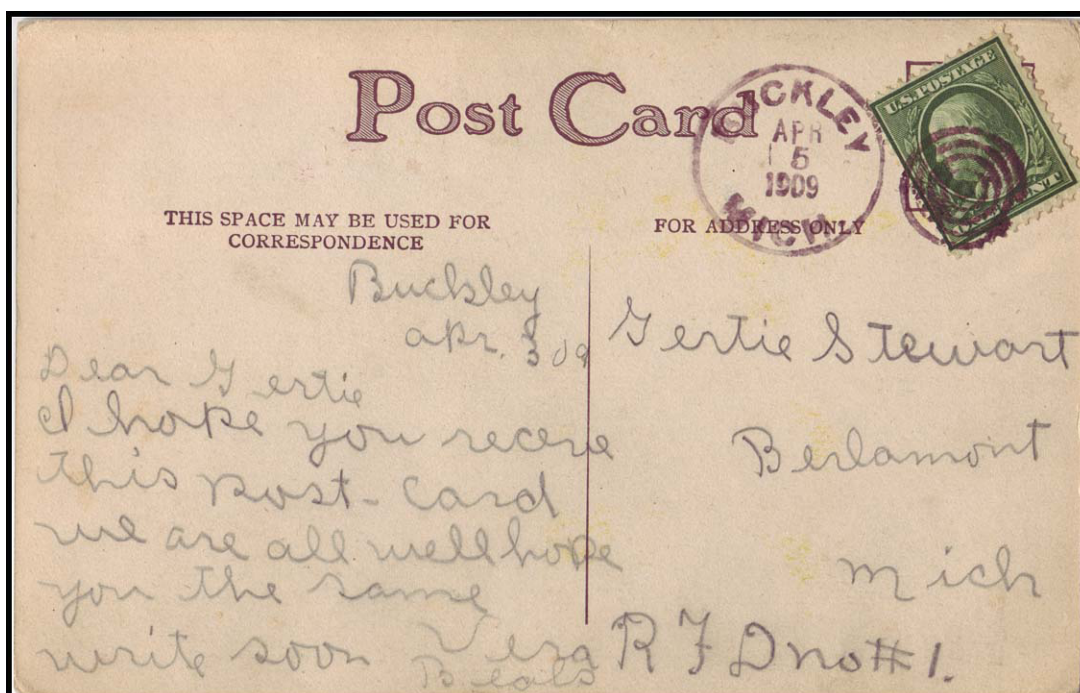 Post Card
BUCKLEY
APR
5
1909
MICH.
U.S. POSTAGE
CENT
THIS SPACE MAY BE USED FOR
CORRESPONDENCE
FOR ADDRESS ONLY
Buckley
apr. 5 09
Dear Gertie
I hope you recere
this post-card
we are all well hope
you the same
write soon Vera
Beals
Gertie Stewart
Berlamont
Mich
R F D no # 1.